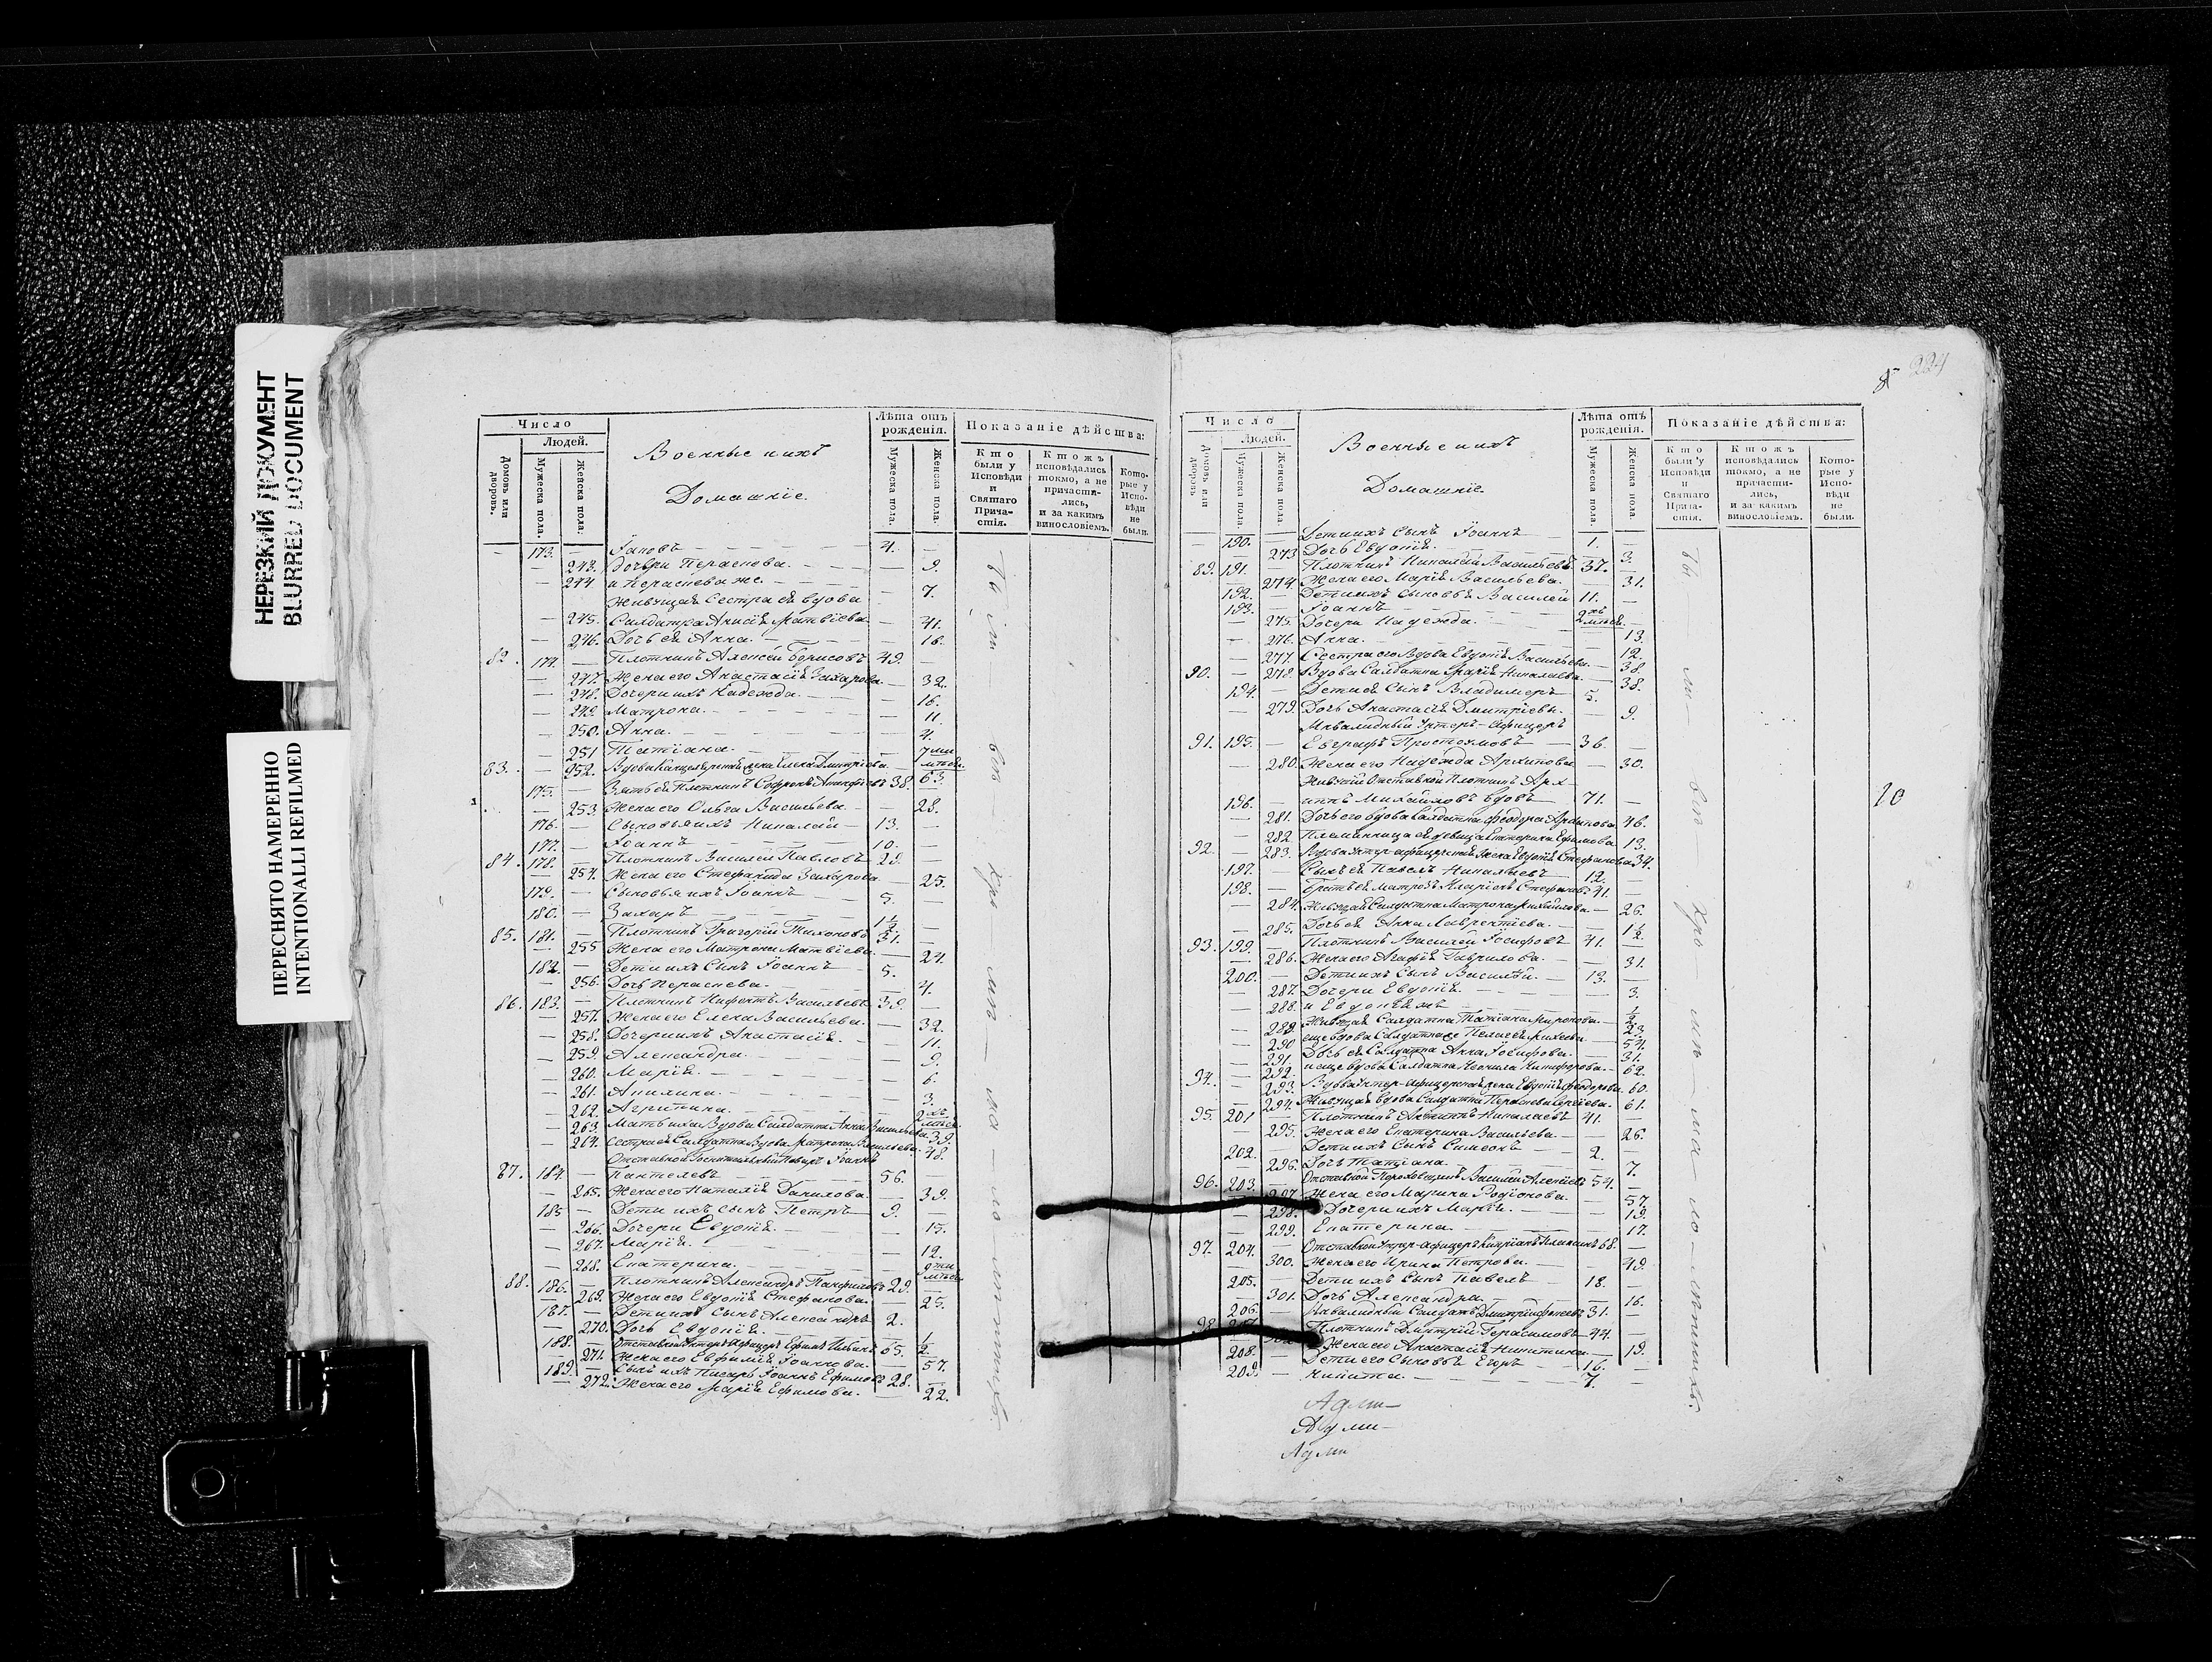 НЕРЕЗКИЙ ДОКУМЕНТ
BLURRED DOCUMENT
ПЕРЕСНЯТО НАМЕРЕННО
INTENTIONALLI REFILMED
Число
Людей.
Домовъ или дворовъ.
Мужеска пола.
Женска пола.
Военные и ихъ
Домашніе.
Лѣта отъ рожденія.
Мужеска пола.
Женска пола.
Показаніе дѣйства:
Кто были у Исповѣди и Святаго Причастія.
Ктожъ исповѣдались токмо, а не причастились, и за какимъ винословіемъ.
Которые у Исповѣди не были.
— 173. — Іаковъ 4. —
— 243. Дочери Параскева. — 9.
— 244 и Параскева же. — 7.
Живущая Сестра ея вдова
— 245. Салдатка Анисія Матвіева — 41.
— 246. Дочь ея Анна. — 16.
82. 174. — Плотникъ Алексѣй Борисовъ 49. —
— 247. Жена его Анастасія Захарова — 32.
— 248. Дочери ихъ Надежда. — 16.
— 249. Матрона. — 11.
— 250. Анна. — 4.
— 251 Татіана. — 7ми мѣсец.
83. — 252. Вдова Елена Дмитріева — 63.
175. — Зять ея Плотникъ 38.
— 253. Жена его Ольга Васильева — 28.
176. — Сыновья ихъ Николай — 13. —
177. — Іоаннъ 10. —
84. 178. — Плотникъ Василей Павловъ 29. —
— 254. Жена его Стефанида Захарова — 25.
179. — Сыновья ихъ Іоаннъ 5. —
180. — Захаръ 1½ —
85. 181. — Плотникъ Григорій Тихоновъ 31. —
— 255 Жена его Матрона Матвіева — 24.
182. — Дети ихъ Сынъ Іоаннъ 5. —
— 256. Дочь Параскева. — 4.
86. 183. — Плотникъ Васильевъ 39. —
— 257. Жена его Елена Васильева. — 32.
— 258. Дочери ихъ Анастасія. — 11.
— 259. Александра. — 9.
— 260. Марія. — 6.
— 261. Акилина. — 3.
— 262. Агрипина. — 2хъ мѣсец.
— 263. Мать ихъ Вдова Салдатка Анна Васильева 39.
— 264. Сестра ея Салдатка Вдова Матрона Васильева 48.
Отставной Іоаннъ
87. 184. — Пантелевъ 56. —
— 265. Жена его Наталія Данилова. — 39.
185 — Дети ихъ сынъ Петръ 9. —
— 266. Дочери Евдокія. — 15.
— 267. Марія. — 12.
— 268. Екатерина. — 9ти мѣсец.
88. 186. — Плотникъ Александръ 29. —
— 269. Жена его Евдокія Стефанова. — 25.
187. — Дети ихъ Сынъ Александръ 2. —
— 270. Дочь Евдокія. — ½
188. — Отставной Унтеръ-афицеръ Ефимъ 65.
— 271. Жена его Евфимія Іоаннова. — 57.
189. — Сынъ ихъ Писарь Іоаннъ Ефимовъ 28. —
— 272. Жена его Марія Ефимова. — 22.
224
Число
Людей.
Домовъ или дворовъ
Мужеска пола.
Женска пола.
Военные и ихъ
Домашніе
Лѣта отъ рожденія.
Мужеска пола.
Женска пола.
Показаніе дѣйства:
Кто были у Исповѣди и Святаго Причастія.
Ктожъ исповѣдались токмо, а не причастились, и за какимъ винословіемъ.
Которые у Исповѣди не были.
— 190. — Дети ихъ Сынъ Іоаннъ 1. —
— 273 Дочь Евдокія. — 3.
89. 191. — Плотникъ Николай Васильевъ 37. —
— 274. Жена его Марія Васильева. — 31.
192. — Дети ихъ Сыновья Василей 11. —
193. — Іоаннъ 2хъ мѣсец. —
— 275. Дочери Надежда. — 13.
— 276. Анна. — 12.
— 277. Сестра его Вдова Евдокія Васильева. — 38
90. — 278. Вдова Салдатка Марія Николаева — 38.
194. — Дети ея Сынъ Владимеръ 5. —
— 279. Дочь Анастасія Дмитріевы. — 9.
Инвалидный Унтеръ-афицеръ
91. 195. — Евграфъ 36. —
— 280. Жена его Надежда Архипова — 30.
Живущій Отставной Плотникъ Арх
196. — иппъ Михайловъ вдовъ 71. —
— 281. Дочь его вдова Салдатка Феодора Архипова 46.
— 282. Племянница ея девица Екатерина Ефимова 13.
92. — 283. Вдова Унтер-афицерская жена Евдокія Стефанова 34.
197. — Сынъ ея Павелъ Николаевъ 12. —
198. — Братъ ея матрозъ Иларіонъ Стефановъ 41. —
— 284. Живущая Салдатка Матрона Михайлова — 26.
— 285. Дочь ея Анна Лаврентіева. — 1½
93. 199. — Плотникъ Василей Іосифовъ 41. —
— 286. Жена его Агафія Гаврилова. — 31.
200. — Дети ихъ Сынъ Василій. 13. —
— 287. Дочери Евдокія. — 3.
— 288. и Евдокія жъ — ½
— 289. Живущая Салдатка Татіана Миронова — 23
— 290 еще вдова Салдатка Пелагея — 54.
— 291. Дочь ея Салдатка Анна Іосифова. — 31.
— 292. и еще вдова Салдатка Неонила Никифорова. — 62.
94. — 293. Вдова Унтер-афицерская жена Евдокія Феодорова. 60.
— 294. Живущая вдова Салдатка Параскева Сергіева. 61.
95. 201 — Плотникъ Николаевъ 41. —
— 295. Жена его Екатерина Васильева. — 26.
202. — Дети ихъ Сынъ Симеонъ 2. —
— 296. Дочь Татіана. — 7.
96. 203. — Отставной Василій Алексѣевъ 54. —
— 297. Жена его Марина Родіонова. — 57
— 298. Дочери ихъ Марія. — 19.
— 299. Екатерина. — 17.
97. 204. — Отставной Унтер-афицеръ 68. —
— 300. Жена его Ирина Петрова. — 49.
205. — Дети ихъ Сынъ Павелъ 18. —
— 301. Дочь Александра. — 16.
206. — Инвалидный Салдатъ Дмитрій 31. —
98. — Плотникъ Дмитрій Герасимовъ 44. —
— Жена его Анастасія Никитина — 19.
208. — Дети его Сыновья Егоръ 16. —
209. — Никита. 7. —
10
Адми-
Адми-
Адми